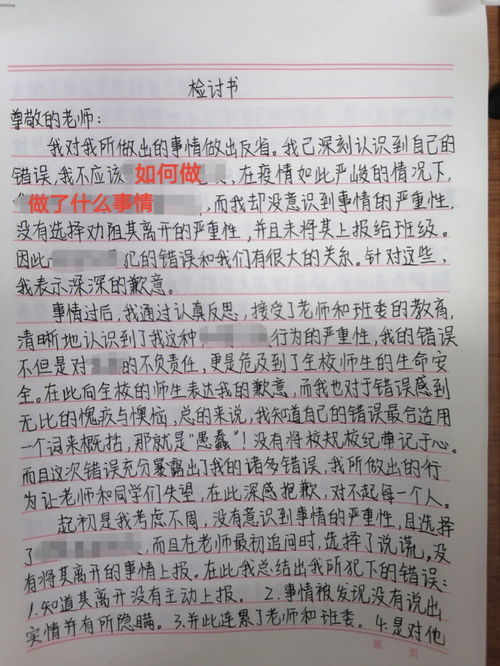 检讨书
尊敬的老师:
我对我所做出的事情做出反省。我已深刻认识到自己的
错误,我不应该如何做,在疫情如此严峻的情况下,
做了什么事情,而我却没意识到事情的严重性,
没有选择劝阻其离开的严重性,并且未将其上报给班级。
因此犯的错误和我们有很大的关系。针对这些,
我表示深深的歉意。
事情过后,我通过认真反思,接受了老师和班委的教育,
清晰地认识到了我这种行为的严重性,我的错误
不但是对的不负责任,更是危及到了全校师生的生命安
全。在此向全校的师生表达我的歉意,而我也对于错误感到
无比的愧疚与懊恼,总的来说,我知道自己的错误最合适用
一个词来概括,那就是“愚蠢”!没有将校规校纪牢记于心。
而且这次错误充分暴露出了我的诸多错误,我所做出的行
为让老师和同学们失望,在此深感抱歉,对不起每一个人。
起初是我考虑不周,没有意识到事情的严重性,且选择
了,而且在老师最初追问时,选择了说谎,没
有将其离开的事情上报。在此我总结出我所犯下的错误:
1.知道其离开没有主动上报。2.事情被发现没有说出
实情并有所隐瞒。3.并此连累了老师和班委。4.是对他
第 页